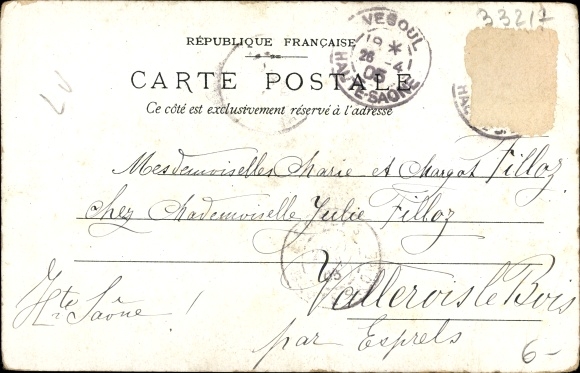 33217
LV
RÉPUBLIQUE FRANÇAISE
VESOUL
19 *
26 -4
05
HTE-SAÔNE
CARTE POSTALE
Ce côté est exclusivement réservé à l'adresse
Mesdemoiselles Marie et Margot Filloz
Chez Mademoiselle Julie Filloz
05
Vallerois le Bois
Hte Saône !
par Esprels
6-